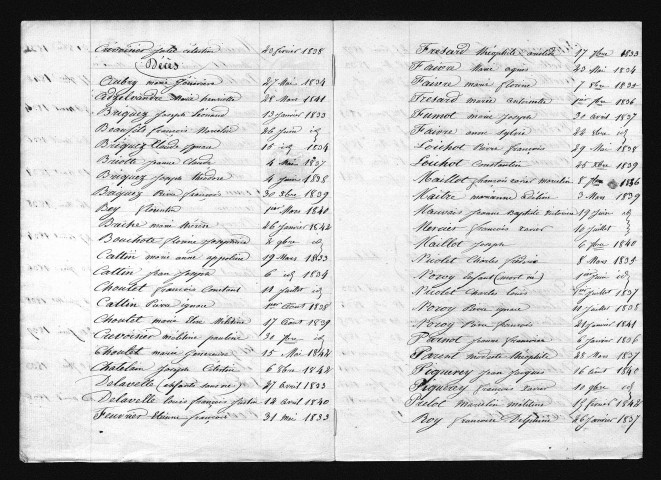 Cuvoisier julie célestin 20 février 1838
Décès
Aubry marie Génevieve 27 Mai 1834
marie henriette 28 Mars 1841
Briquez Joseph Léonard 13 janvier 1833
Beaufils françois Marcelin 26 juin id
Briquez Claude ignace 15 id 1834
Briotte jeanne Claude 4 Mai 1837
Briquez joseph théodore 4 janvier 1838
Briquez Pierre françois 30 Xbre 1839
Boy florentin 1er Mars 1840
marie thérèse 26 janvier 1842
Bouchote 8 9bre id
Cattin marie anne appoline 19 Mars 1833
Cattin jean joseph 6 id 1834
Choulet françois Constant 11 juillet id
Cattin Pierre ignace 1er Août 1838
Choulet marie Elise Militine 17 Août 1839
Cuvoisier militine pauline 30 7bre id
Choulet marie 15 Mai 1842
Chatelain Joseph Célestin 6 Xbre 1842
Delavelle (enfant mort né) 27 avril 1833
Delavelle louis françois justin 12 avril 1840
Feuvrier Etienne françois 31 mai 1833
Fresard théophile 17 7bre 1833
Faivre Marie agnès 23 Mai 1834
Faivre marie florine 7 Xbre 1835
Fresard marie antoinette 1er 7bre 1836
Fumot marie joseph 30 avril 1837
Faivre anne sylvie 22 Xbre id
Loichot Pierre françois 29 Mai 1838
Loichot Constantin 25 Xbre 1839
Maillot françois xavier marcelin 8 7bre 1836
Maitre marianne 3 Mars 1839
Mauvais jeanne Baptiste Victorine 19 juin id
Mercier françois xavier 10 juillet id
Maillot joseph 6 7bre 1840
Nicolet Charles frédéric 8 Mars 1835
Noroy enfant (mort né) 1er juin id
Nicolet Charles louis 1er juillet 1837
Noroy Pierre ignace 11 juillet 1838
Noroy Pierre françois 21 janvier 1841
jeanne françoise 6 janvier 1836
Parent modeste théophile 28 Mars 1837
Piquerez jean jacques 16 Août 1840
Piquerez françois xavier 10 9bre id
Prelot marcelin militine 15 février 1842
Roy françoise Delphine 26 janvier 1837